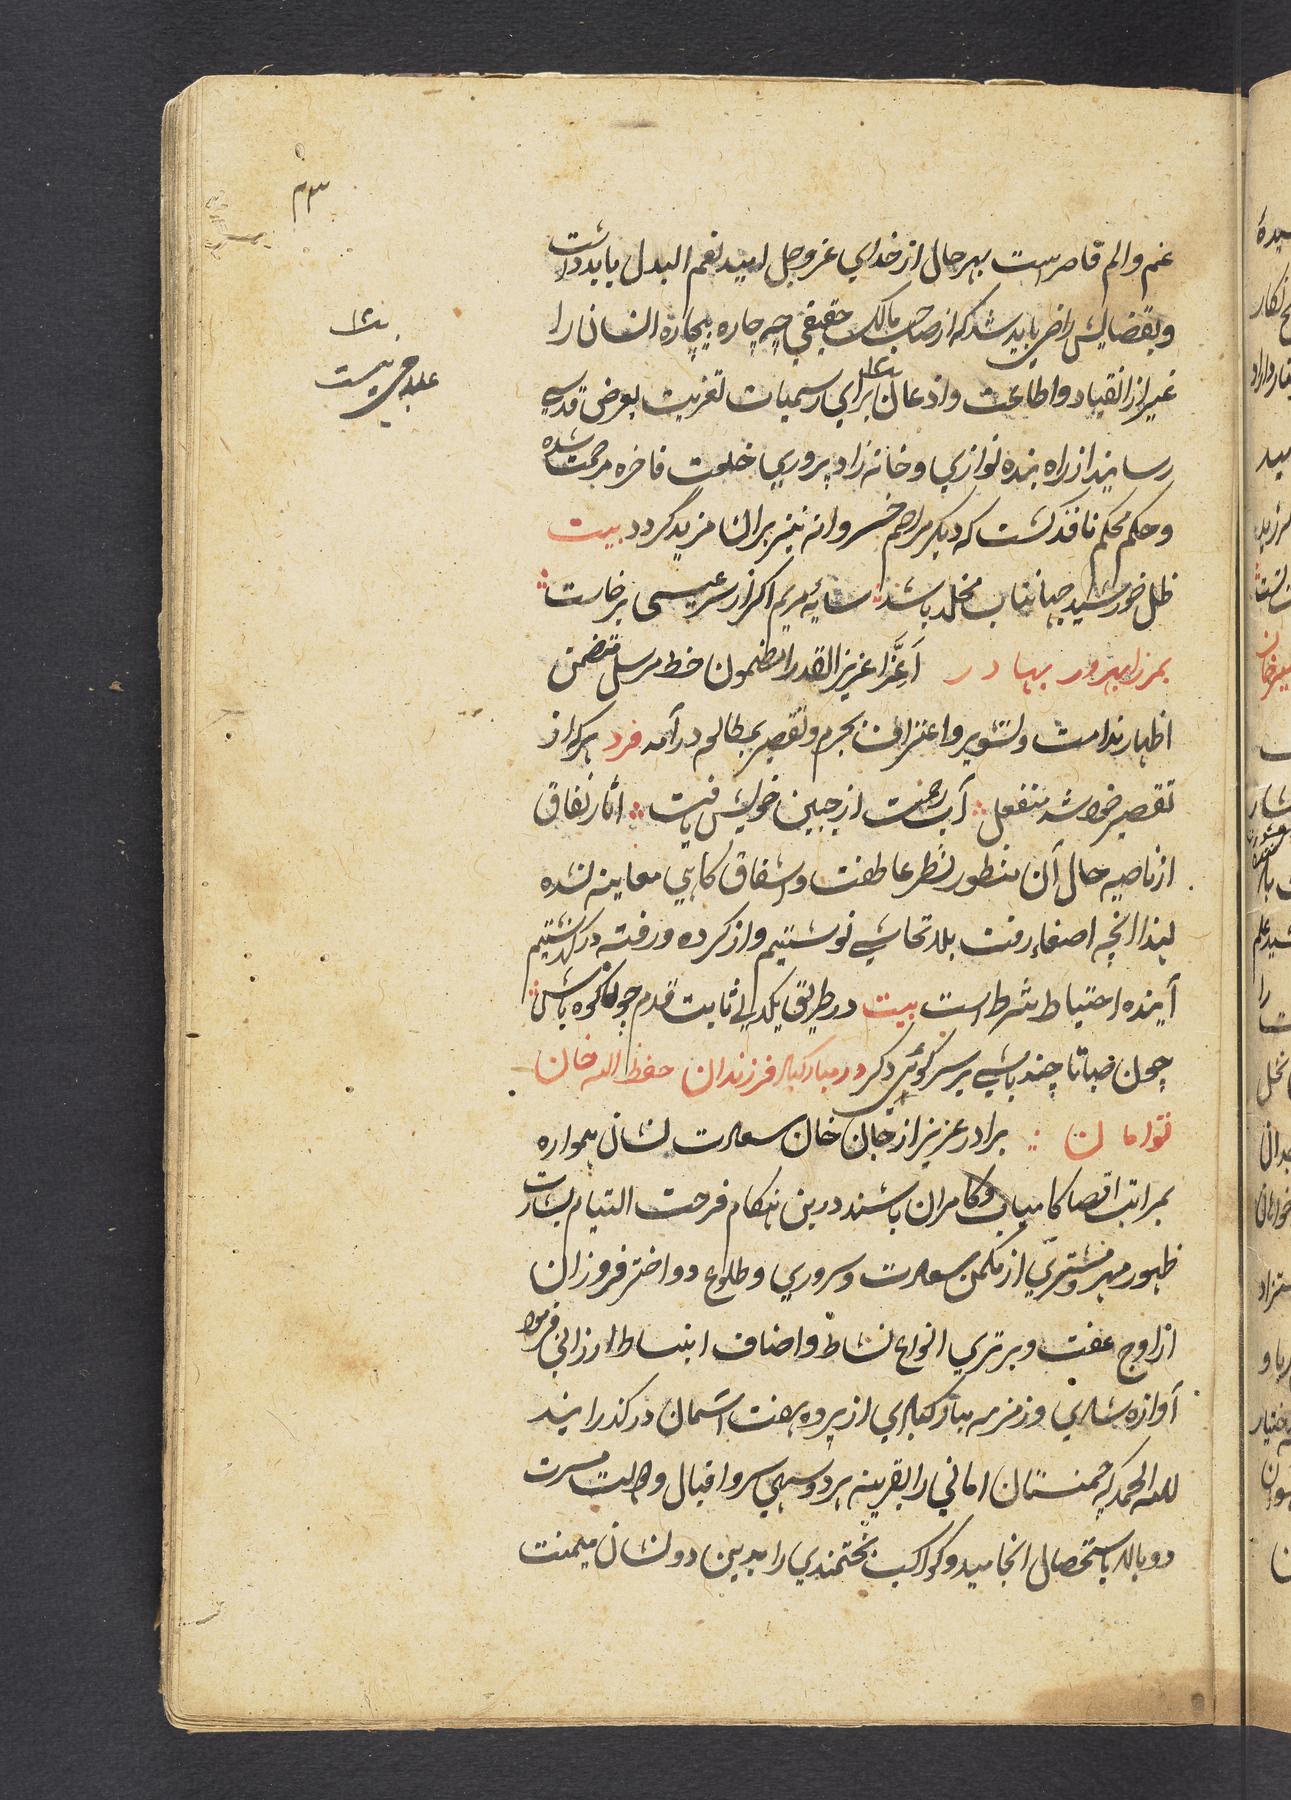 غم والم قاصر است بهر حال از خدای عز وجل امید نعم البدل باید داشت
وبقضایش راضی باید شد که از صاحب مالک حقیقی چه چاره بیچاره انسان را
غیر از انقیاد واطاعت واذعان برای رسمیات تعزیت بعرض قدسی
رسانید از راه بنده نوازی وخانه زاد پروری خلعت فاخره مرحمت شده
وحکم محکم نافذ گشت که دیگر مراحم خسروانه نیز بران مزید گردد بیت
ظل خورشید جهانتاب مخلد باشد سایهٔ مریم اگر از سر عیسی برخاست
بمرزا بهرور بهادر اعزا عزیز القدرا مضمون خط مرسل متضمن
اظهار ندامت وتشویر واعتراف بجرم وتقصیر بمطالعه درآمد فرد هر که از
تقصیر خود شد منفعل آب رحمت از جبین خویش یافت اثار نفاق
از ناصیه حال آن منظور نظر عاطفت واشفاق گاهی معاینه نشده
لهذا انچه اصغاء رفت بلا تحاشی نوشتیم واز کرده ورفته در گذشتیم
آینده احتیاط شرط است بیت در طریق یکدلی ثابت قدم چون کوه باش
چون صبا تا چند باشی بر سر کوی دگر در مبارکباد فرزندان حفظ الله خان
توامان برادر عزیز از جان خان سعادت نشان همواره
بمراتب اقصا کامیاب وکامران باشند درین هنگام فرحت التیام بشارت
ظهور مهر ومشتری از مکمن سعادت وسروری وطلوع دو اختر فروزان
از اوج عفت وبرتری انواع نشاط واصناف انبساط ارزانی فرمود
آوازه شادی وزمزمه مبارکبادی از پرده هفت آسمان در گذرانید
لله الحمد که چمنستان امانی را بقرینه هر دو سهی سرو اقبال ودولت مسرت
دوبالا باستحصال انجامید وکواکب بختمندی را بدین دو نشان میمنت